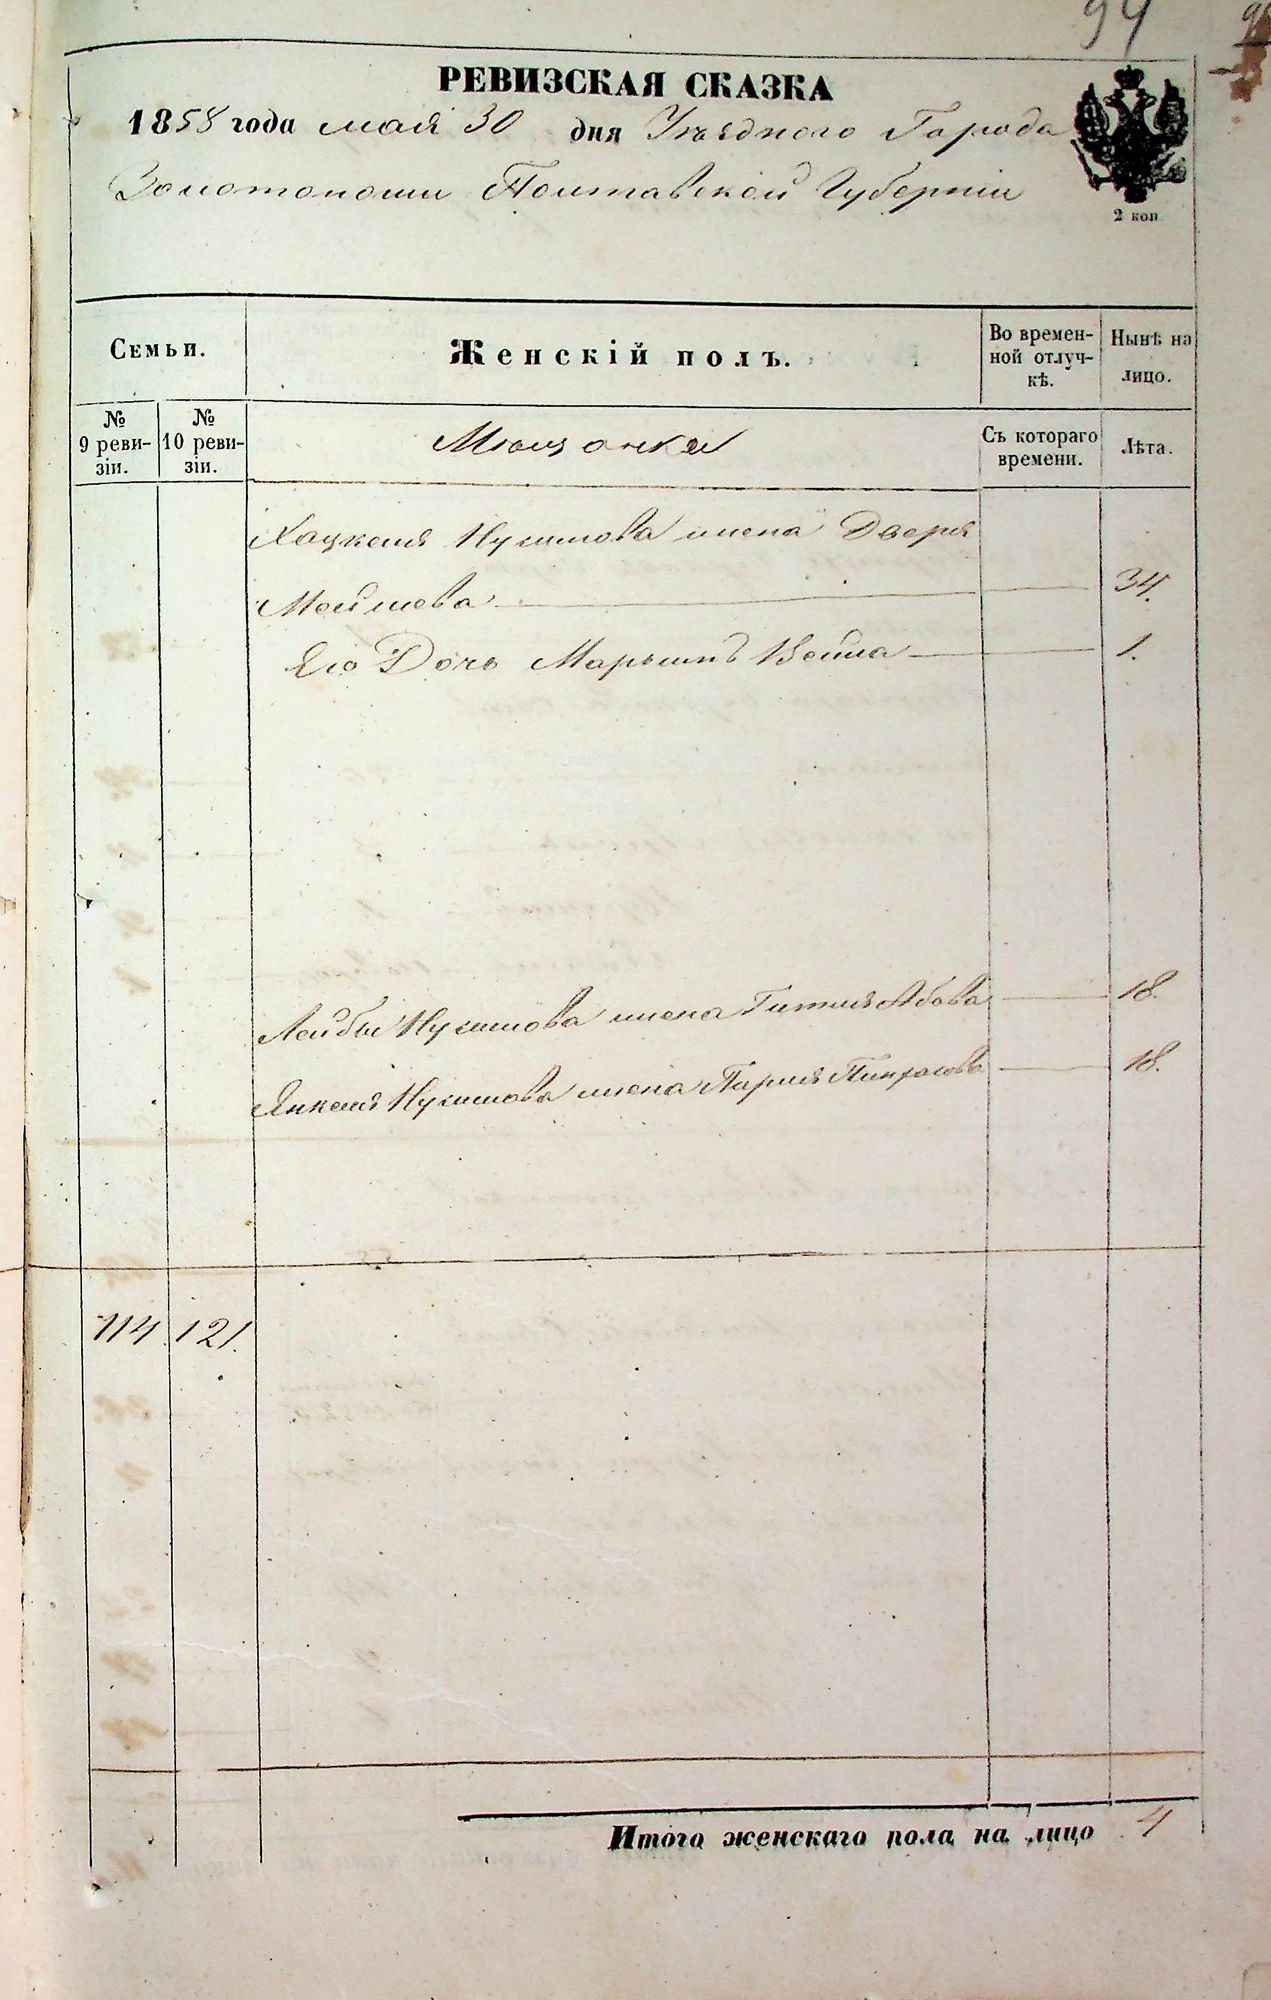 94
РЕВИЗСКАЯ СКАЗКА
1858 года мая 30 дня Уѣзднаго Города
Золотоноши Полтавской Губерніи
2 коп
Семьи.
Женскій полъ.
Во времен-
ной отлуч-
кѣ.
Нынѣ на
лицо.
№
9 реви-
зіи.
№
10 реви-
зіи.
Мѣщанки
Съ котораго
времени.
Лѣта.
Хацкеля Нухимова жена Двейра
Мошева 34.
Его Дочь Марьимъ Бейла 1.
Лейбы Нухимова жена Гитля Абова 18.
Янкеля Нухимова жена Пинхасова 18.
114. 121.
Итого женскаго пола на лицо 4